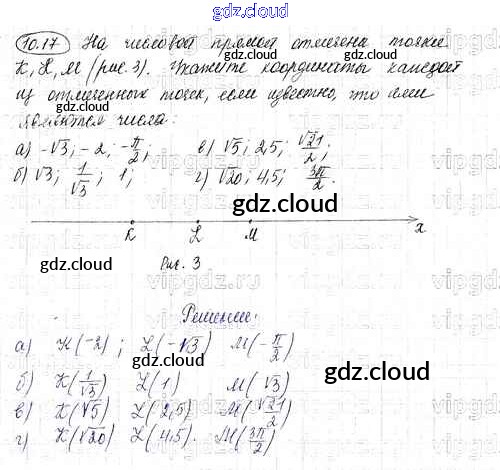 gdz.cloud
10.17 На числовой прямой отмечены точки
K, L, M (рис. 3). Укажите координаты каждой
из отмеченных точек, если известно, что ими
являются числа:
а) -√3; -2; -π/2; в) √5; 2,5; √21/2;
б) √3; 1/√3; 1; г) √20; 4,5; 3π/2.
gdz.cloud
K L M x
gdz.cloud Рис. 3 gdz.cloud
Решение:
а) K(-2); L(-√3) M(-π/2)
б) K(1/√3) L(1) M(√3)
в) K(√5) L(2,5) M(√21/2)
г) K(√20) L(4,5). M(3π/2)
gdz.cloud